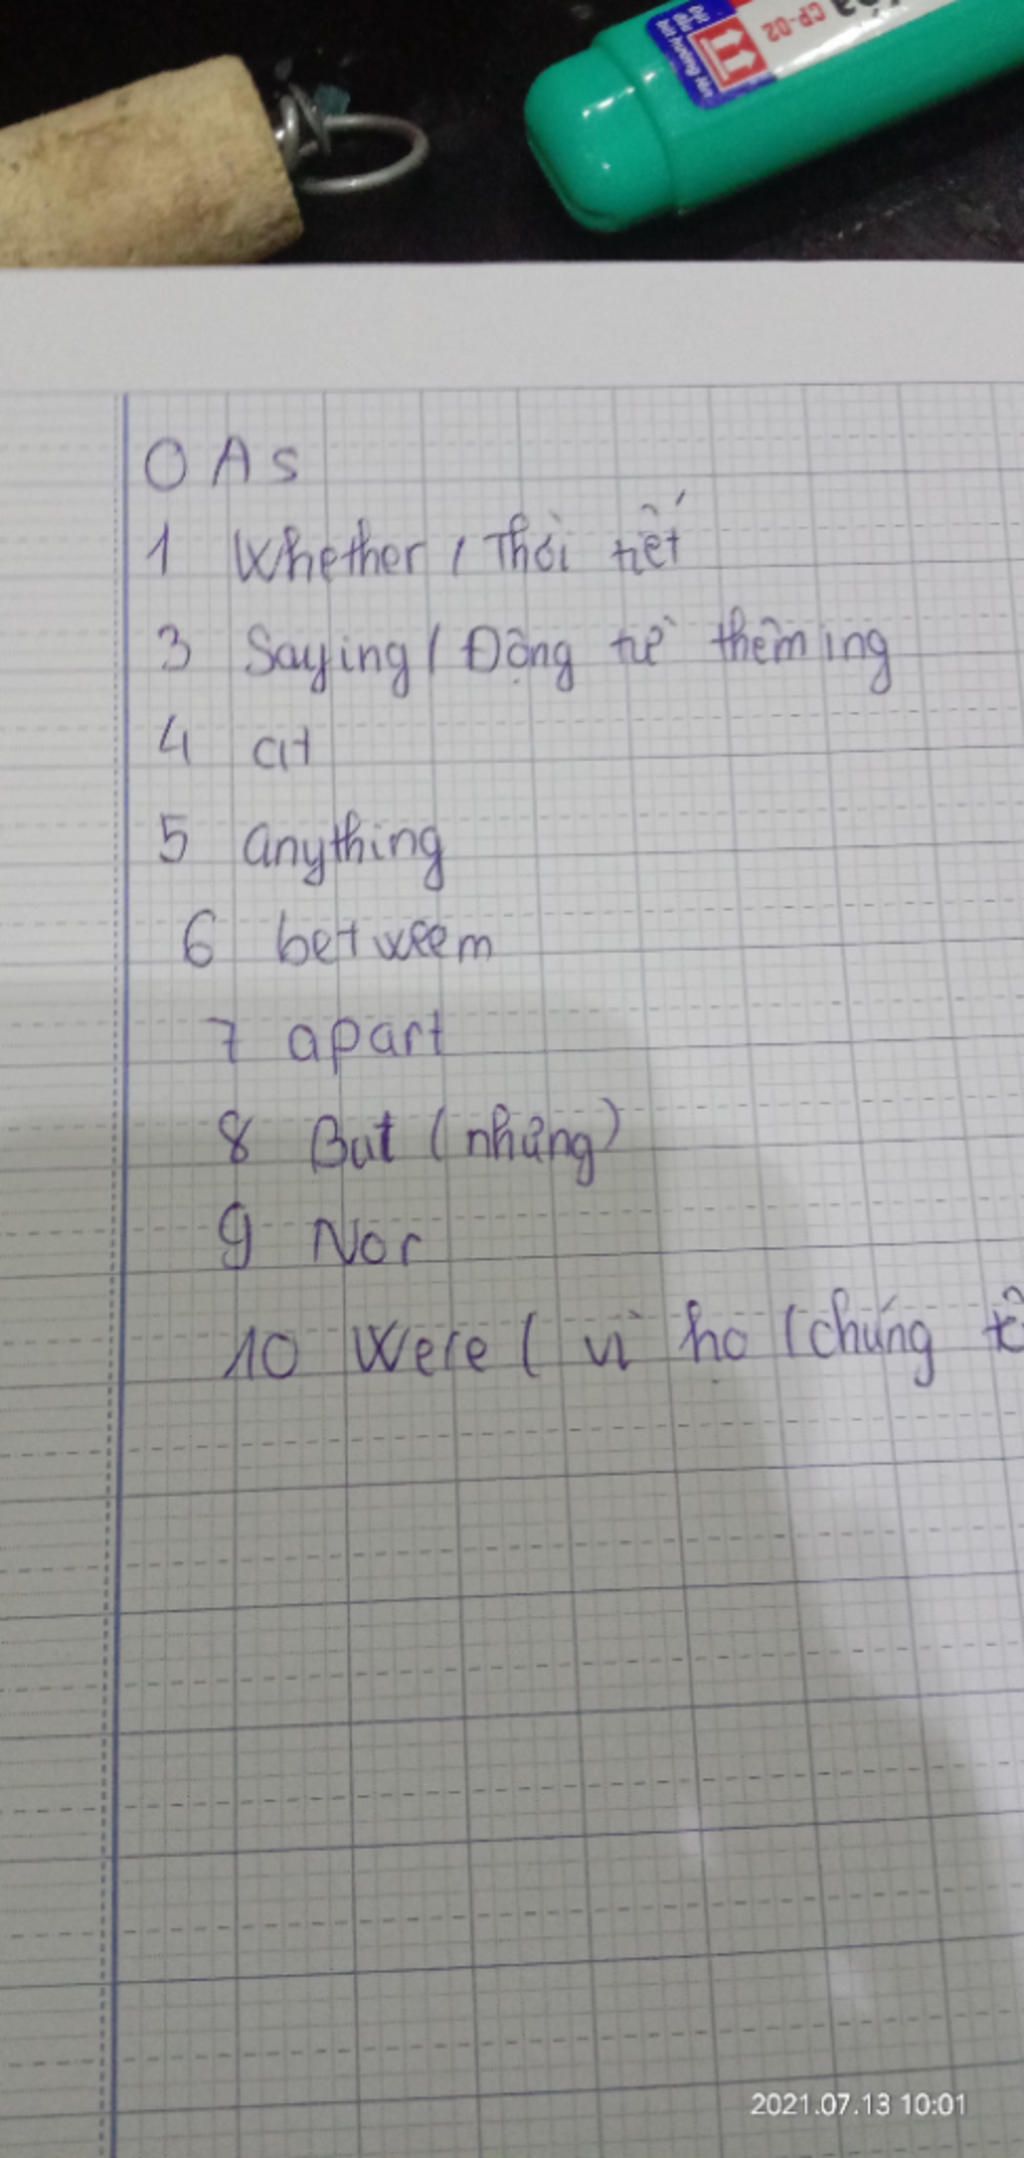 CP-02
0 As
1 Whether / Thời tiết
3 Saying / Động từ thêm ing
4 at
5 anything
6 betweem
7 apart
8 But (nhưng)
9 Nor
10 Were ( vì họ (chúng
2021.07.13 10:01